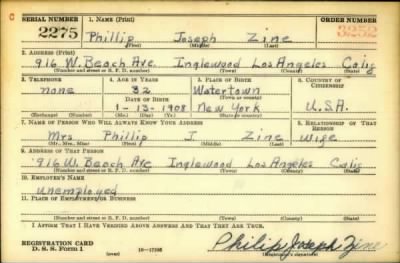 C
SERIAL NUMBER 1. NAME (Print) ORDER NUMBER
2275 Phillip Joseph Zine 3252
(First) (Middle) (Last)
2. ADDRESS (Print)
916 W. Beach Ave. Inglewood Los Angeles Calif
(Number and street or R. F. D. number) (Town) (County) (State)
3. TELEPHONE 4. AGE IN YEARS 5. PLACE OF BIRTH 6. COUNTRY OF CITIZENSHIP
none 32 Watertown
DATE OF BIRTH (Town or county)
1-13-1908 New York U.S.A.
(Exchange) (Number) (Mo.) (Day) (Yr.) (State or country)
7. NAME OF PERSON WHO WILL ALWAYS KNOW YOUR ADDRESS 8. RELATIONSHIP OF THAT PERSON
Mrs Phillip J. Zine Wife
(Mr., Mrs., Miss) (First) (Middle) (Last)
9. ADDRESS OF THAT PERSON
916 W. Beach Ave Inglewood Los Angeles Calif
(Number and street or R. F. D. number) (Town) (County) (State)
10. EMPLOYER'S NAME
Unemployed
11. PLACE OF EMPLOYMENT OR BUSINESS
(Number and street or R. F. D. number) (Town) (County) (State)
I AFFIRM THAT I HAVE VERIFIED ABOVE ANSWERS AND THAT THEY ARE TRUE.
REGISTRATION CARD
D. S. S. FORM 1 (over) 16-17105 Philip Joseph Zine
(Registrant's signature)